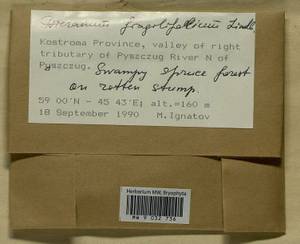 Dicranum fragilifolium Lindb.
Kostroma Province, valley of right
tributary of Pyszczug River N of
Pyszczug. Swampy spruce forest
on rotten stump.
59 00'N - 45 43'E; alt.=160 m
18 September 1990 M.Ignatov
Herbarium MW, Bryophyta
MW 9 032 736